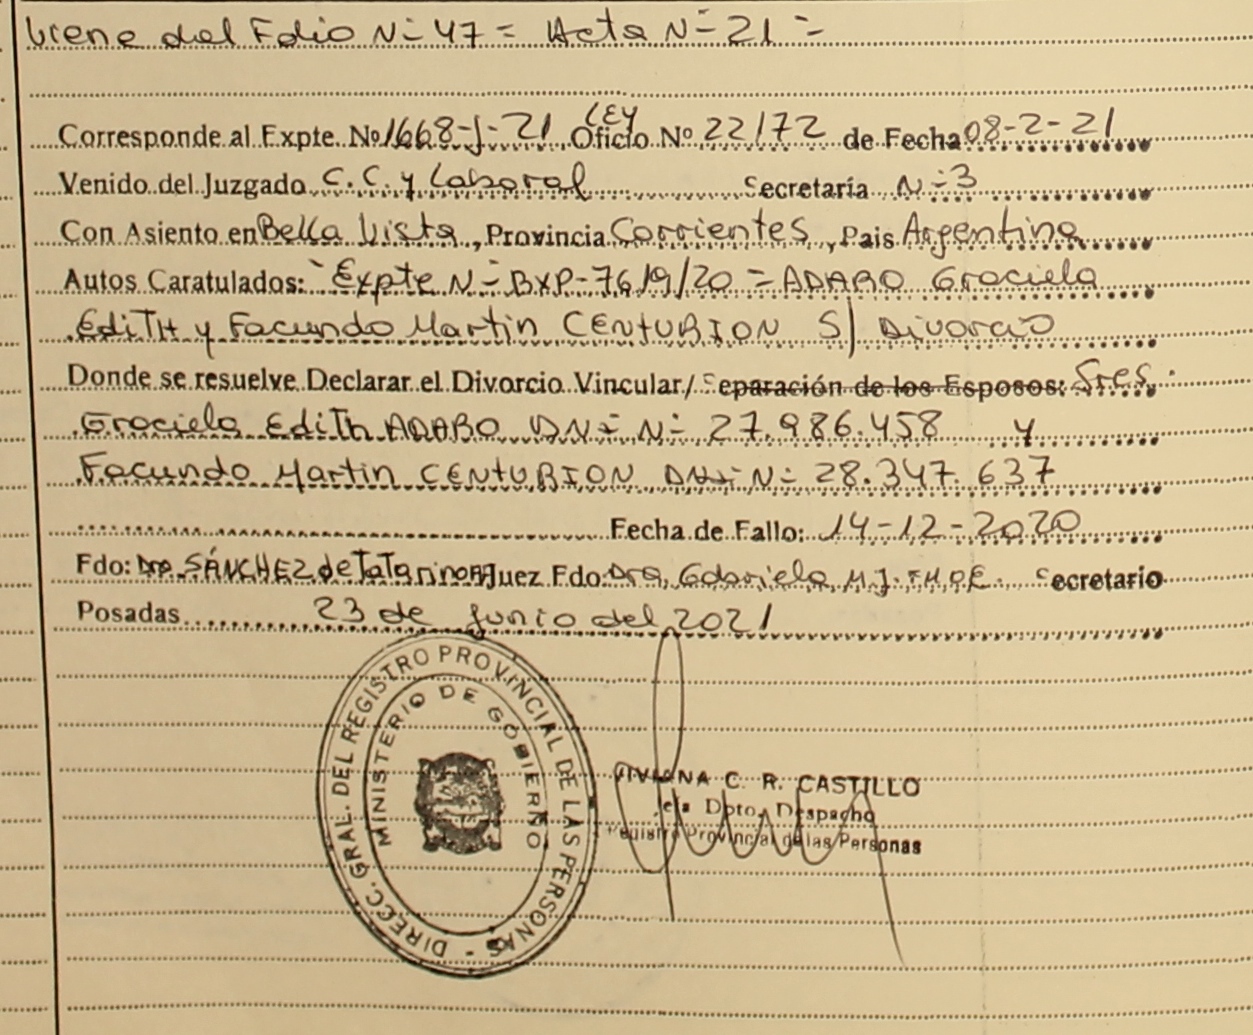 viene del Folio N= 47 = Acta N= 21 =
LEY
Corresponde al Expte. Nº 1668-J-21 Oficio Nº 22172 de Fecha 08-2-21
Venido del Juzgado C.C. y Laboral Secretaría N=3
Con Asiento en Bella Vista, Provincia Corrientes, Pais Argentina
Autos Caratulados: Expte N= BXP-7619/20 = ADARO Graciela
Edith y Facundo Martin CENTURION S/ Divorcio
Donde se resuelve Declarar el Divorcio Vincular/ Separación de los Esposos: Sres.
Graciela Edith ADARO DN= N= 27.986.458 y
Facundo Martin CENTURION N= 28.347.637
Fecha de Fallo: 14-12-2020
Fdo: Dra. SÁNCHEZ de Juez Fdo: Dra, Gabriela M.J. Secretario
Posadas 23 de Junio del 2021
DIRECC. GRAL. DEL REGISTRO PROVINCIAL DE LAS PERSONAS -
MINISTERIO DE GOBIERNO
VIVIANA C. R. CASTILLO
Jefa Dpto. Despacho
Registro Provincial de las Personas